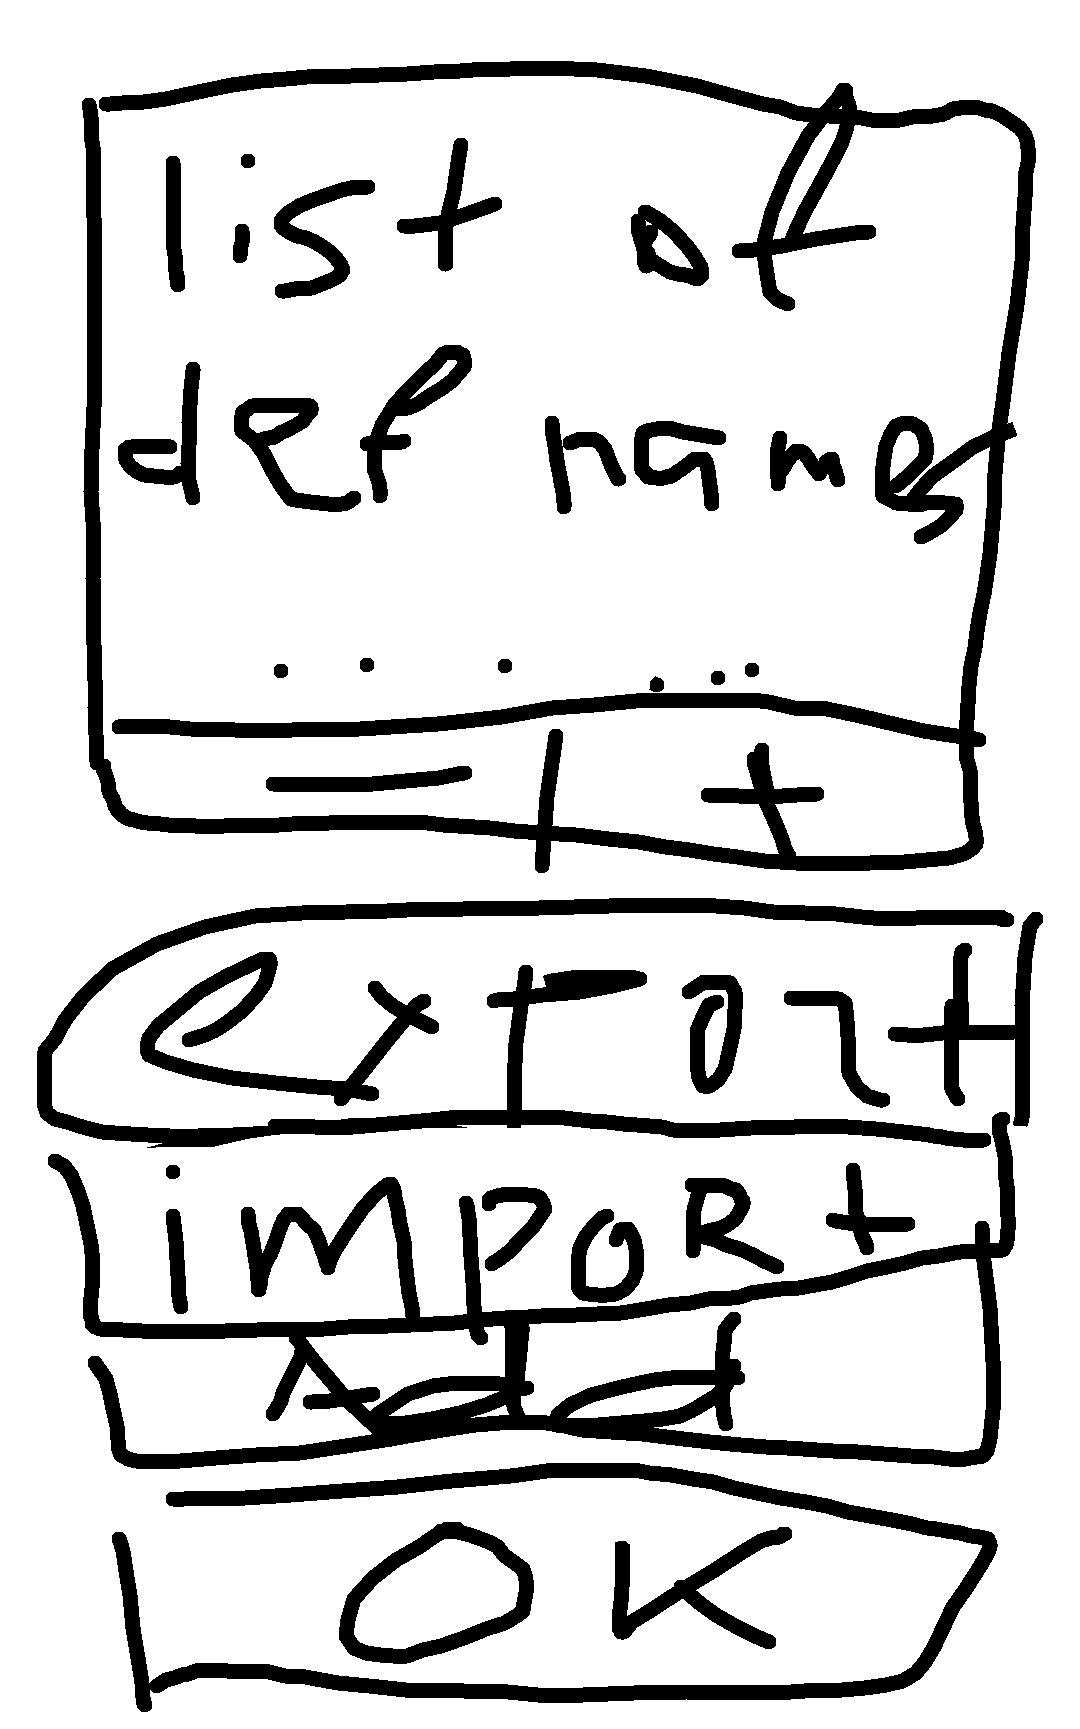 list of
def names
. . . . . .
- | +
export
import
Add
OK